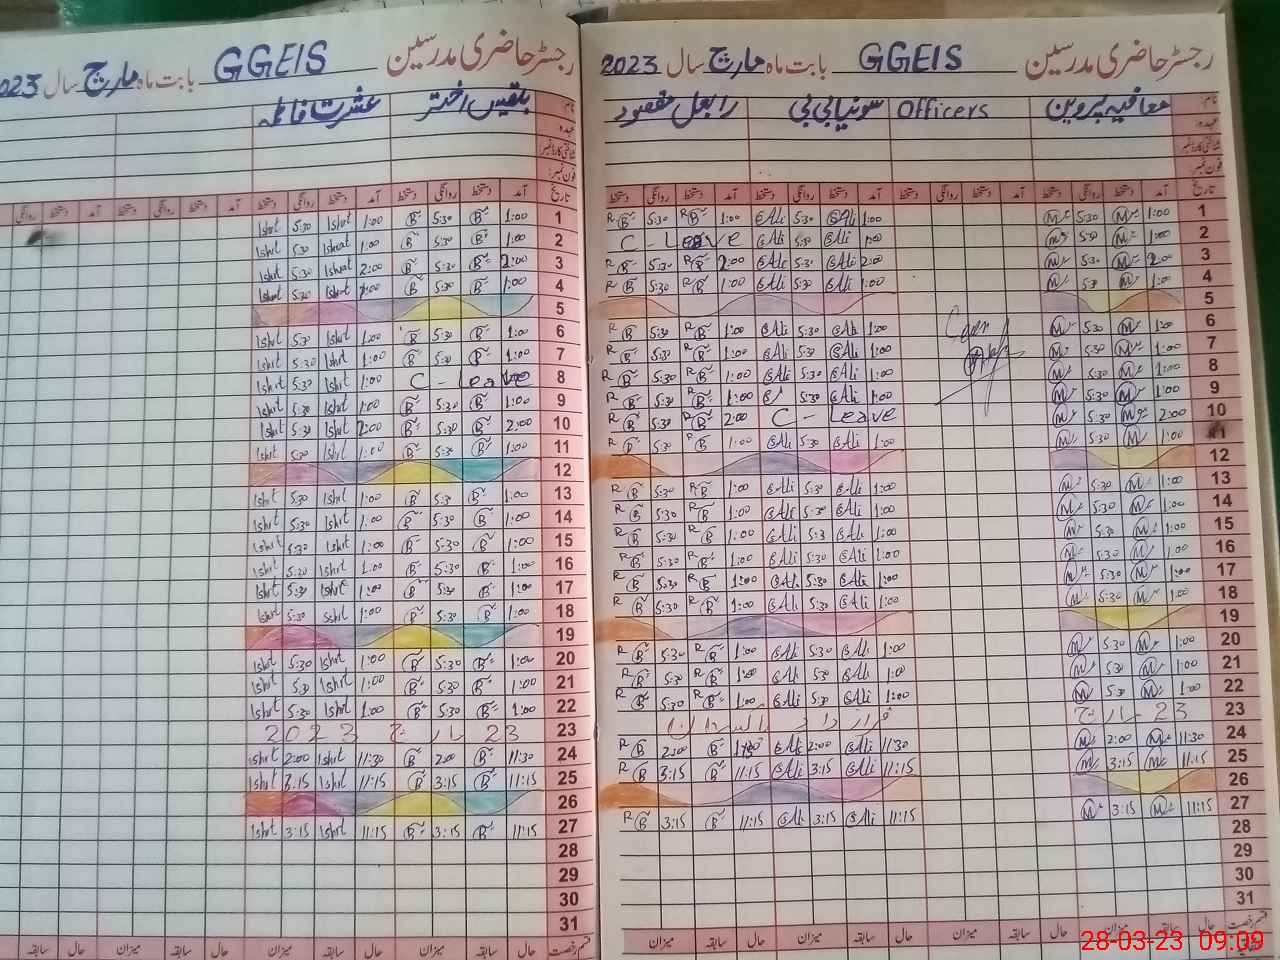 رجسٹر حاضری مدرسین GGEIS بابت ماہ مارچ سال 2023
نام: معافیہ پروین Officers سونیا بی بی رابعل مقصود
عہدہ:
شناختی کارڈ نمبر:
فون نمبر:
تاریخ آمد دستخط روانگی دستخط آمد دستخط روانگی دستخط آمد دستخط روانگی دستخط آمد دستخط روانگی دستخط
1 1:00 M 5:30 M 1:00 GAli 5:30 GAli 1:00 RB 5:30 RB
2 1:00 M 5:30 M 1:00 GAli 5:30 GAli C - Leave
3 2:00 M 5:30 M 2:00 GAli 5:30 GAli 2:00 RB 5:30 RB
4 1:00 M 5:30 M 1:00 GAli 5:30 GAli 1:00 RB 5:30 RB
5
6 1:00 M 5:30 M 1:00 GAli 5:30 GAli 1:00 RB 5:30 RB
7 1:00 M 5:30 M 1:00 GAli 5:30 GAli 1:00 RB 5:30 RB
8 1:00 M 5:30 M 1:00 GAli 5:30 GAli 1:00 RB 5:30 RB
9 1:00 M 5:30 M 1:00 GAli 5:30 1:00 RB 5:30 RB
10 2:00 M 5:30 M C - Leave 2:00 RB 5:30 RB
11 1:00 M 5:30 M 1:00 GAli 5:30 GAli 1:00 RB 5:30 RB
12
13 1:00 M 5:30 M 1:00 GAli 5:30 GAli 1:00 RB 5:30 RB
14 1:00 M 5:30 M 1:00 GAli 5:30 GAli 1:00 RB 5:30 RB
15 1:00 M 5:30 M 1:00 GAli 5:3 GAli 1:00 RB 5:30 RB
16 1:00 M 5:30 M 1:00 GAli 5:30 GAli 1:00 RB 5:30 RB
17 1:00 M 5:30 M 1:00 GAli 5:30 GAli 1:00 RB 5:30 RB
18 1:00 M 5:30 M 1:00 GAli 5:30 GAli 1:00 RB 5:30 RB
19
20 1:00 M 5:30 M 1:00 GAli 5:30 GAli 1:00 RB 5:30 RB
21 1:00 M 5:30 M 1:00 GAli 5:30 GAli 1:00 RB 5:30 RB
22 1:00 M 5:30 M 1:00 GAli 5:30 GAli 1:00 RB 5:30 RB
23 23 مارچ قرار داد
24 11:30 M 2:00 M 11:30 GAli 2:00 GAli B 2:00 RB
25 11:15 M 3:15 M 11:15 GAli 3:15 GAli 11:15 B 3:15 RB
26
27 11:15 M 3:15 M 11:15 GAli 3:15 GAli 11:15 B 3:15 RB
28
29
30
31
قسم رخصت حال سابقہ میزان حال سابقہ میزان حال سابقہ میزان
رجسٹر حاضری مدرسین GGEIS بابت ماہ مارچ سال 2023
نام: بلقیس اختر عشرت فاطمہ
عہدہ:
شناختی کارڈ نمبر:
فون نمبر:
تاریخ آمد دستخط روانگی دستخط آمد دستخط روانگی دستخط آمد دستخط روانگی دستخط آمد دستخط روانگی
1 1:00 B 5:30 B 1:00 Ishrt 5:30 Ishrt
2 1:00 B 5:30 B 1:00 Ishrat 5:30 Ishrt
3 2:00 B 5:30 B 2:00 Ishrat 5:30 Ishrt
4 1:00 B 5:30 B 1:00 Ishrat 5:30 Ishrat
5
6 1:00 B 5:30 B 1:00 Ishrt 5:30 Ishrt
7 1:00 B 5:30 B 1:00 Ishrt 5:30 Ishrt
8 C - Leave 1:00 Ishrt 5:30 Ishrt
9 1:00 B 5:30 B 1:00 Ishrt 5:30 Ishrt
10 2:00 B 5:30 B 2:00 Ishrt 5:30 Ishrt
11 1:00 B 5:30 B 1:00 Ishrt 5:30 Ishrt
12
13 1:00 B 5:30 B 1:00 Ishrt 5:30 Ishrt
14 1:00 B 5:30 B 1:00 Ishrt 5:30 Ishrt
15 1:00 B 5:30 B 1:00 Ishrt 5:30 Ishrt
16 1:00 B 5:30 B 1:00 Ishrt 5:30 Ishrt
17 1:00 B 5:30 B 1:00 Ishrt 5:30 Ishrt
18 1:00 B 5:30 B 1:00 Ishrt 5:30 Ishrt
19
20 1:00 B 5:30 B 1:00 Ishrt 5:30 Ishrt
21 1:00 B 5:30 B 1:00 Ishrt 5:30 Ishrt
22 1:00 B 5:30 B 1:00 Ishrt 5:30 Ishrt
23 23 مارچ 2023
24 11:30 B 2:00 B 11:30 Ishrt 2:00 Ishrt
25 11:15 B 3:15 B 11:15 Ishrt 3:15 Ishrt
26
27 11:15 B 3:15 B 11:15 Ishrt 3:15 Ishrt
28
29
30
31
قسم رخصت حال سابقہ میزان حال سابقہ میزان حال سابقہ میزان حال سابقہ
28-03-23 09:09